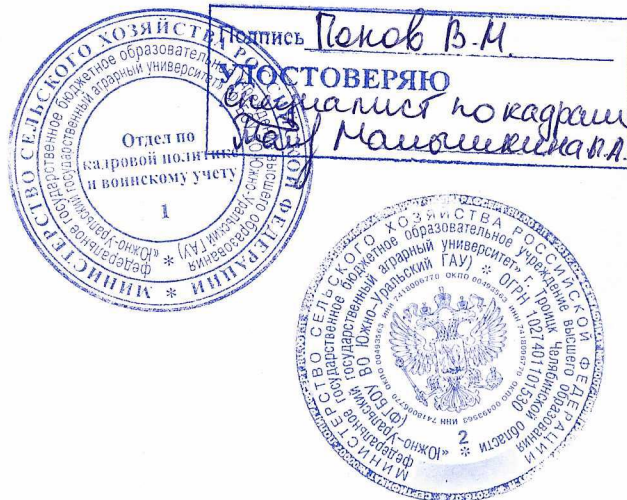 Подпись Попов В.М.
УДОСТОВЕРЯЮ
специалист по кадрам
Мамошкина
МИНИСТЕРСТВО СЕЛЬСКОГО ХОЗЯЙСТВА РОССИЙСКОЙ ФЕДЕРАЦИИ *
федеральное государственное бюджетное образовательное учреждение высшего образования
«Южно-Уральский государственный аграрный университет»
(ФГБОУ ВО Южно-Уральский ГАУ)
Отдел по
кадровой политике
и воинскому учету
1
МИНИСТЕРСТВО СЕЛЬСКОГО ХОЗЯЙСТВА РОССИЙСКОЙ ФЕДЕРАЦИИ
федеральное государственное бюджетное образовательное учреждение высшего образования
«Южно-Уральский государственный аграрный университет» г. Троицк Челябинской области
(ФГБОУ ВО Южно-Уральский ГАУ) * ОГРН 1027401101530 *
ИНН 7418006770 ОКПО 00493563 ИНН 7418006770 ОКПО 00493563 ИНН 7418006770 ОКПО 00493563
2